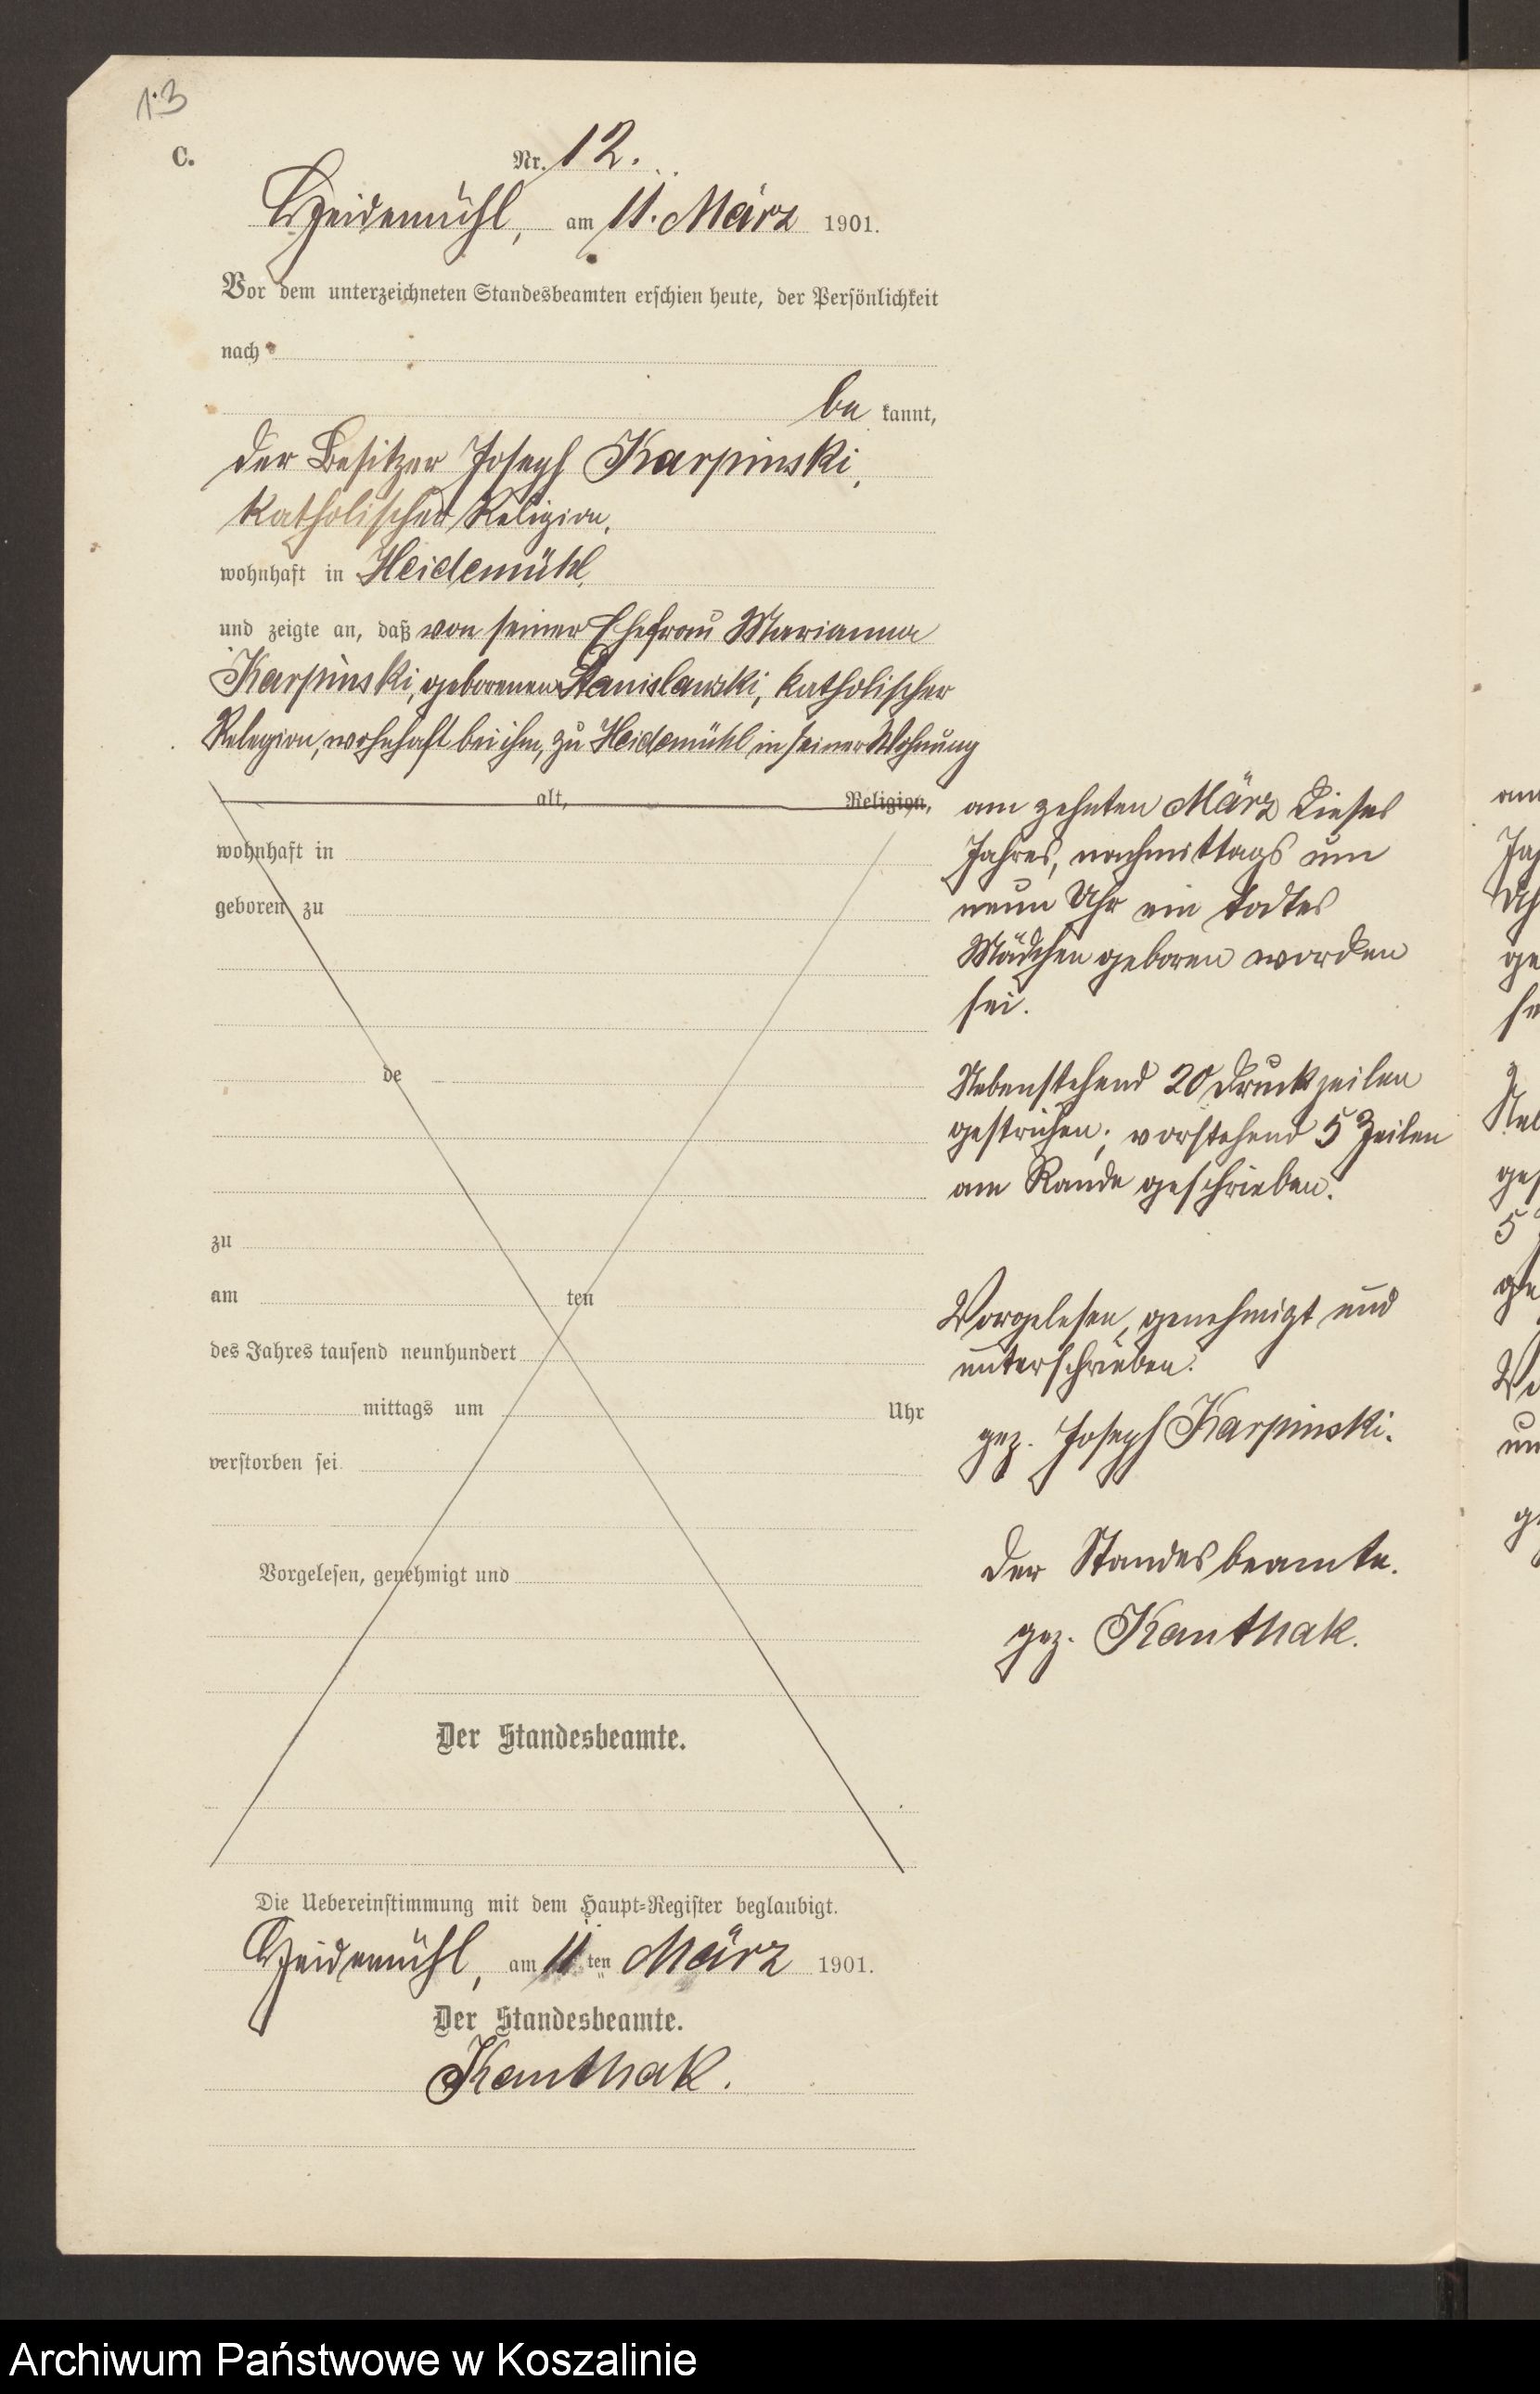 13
C.
Nr. 12.
Heidemühl, am 11. März 1901.
Vor dem unterzeichneten Standesbeamten erschien heute, der Persönlichkeit
nach
be kannt,
der Besitzer Joseph Karpinski,
katholischer Religion,
wohnhaft in Heidemühl
und zeigte an, daß von seiner Ehefrau Marianna
Karpinski, geborenen Stanislawski, katholischer
Relegion, wohnhaft bei ihm, zu Heidemühl in seiner Wohnung
alt, Religion,
wohnhaft in
geboren zu
de
zu
am ten
des Jahres tausend neunhundert
mittags um Uhr
verstorben sei
Vorgelesen, genehmigt und
Der Standesbeamte.
am zehnten März dieses
Jahres, nachmittags um
neun Uhr ein todtes
Mädchen geboren worden
sei.
Nebenstehend 20 Druckzeilen
gestrichen; vorstehend 5 Zeilen
am Rande geschrieben.
Vorgelesen, genehmigt und
unterschrieben.
gez. Joseph Karpinski.
Der Standesbeamte.
gez. Kanthak.
Die Uebereinstimmung mit dem Haupt-Register beglaubigt.
Heidemühl, am 11ten März 1901.
Der Standesbeamte.
Kanthak.
Archiwum Państwowe w Koszalinie